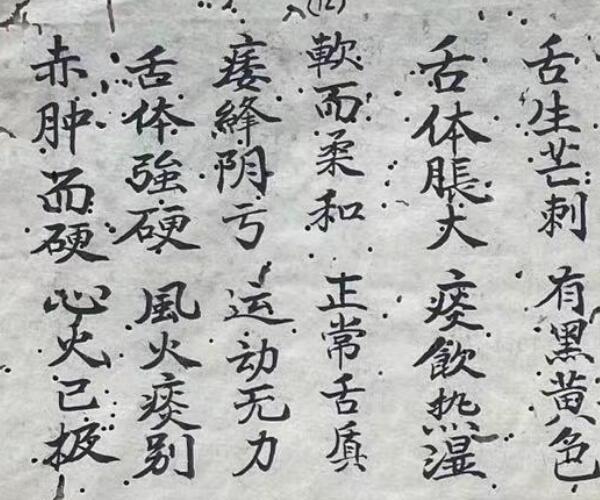 舌生芒刺 有黑黄色
舌体脹大 痰飲热湿
軟而柔和 正常舌质
痿絳阴亏 运动无力
舌体強硬 風火痰别
赤肿而硬 心火已极